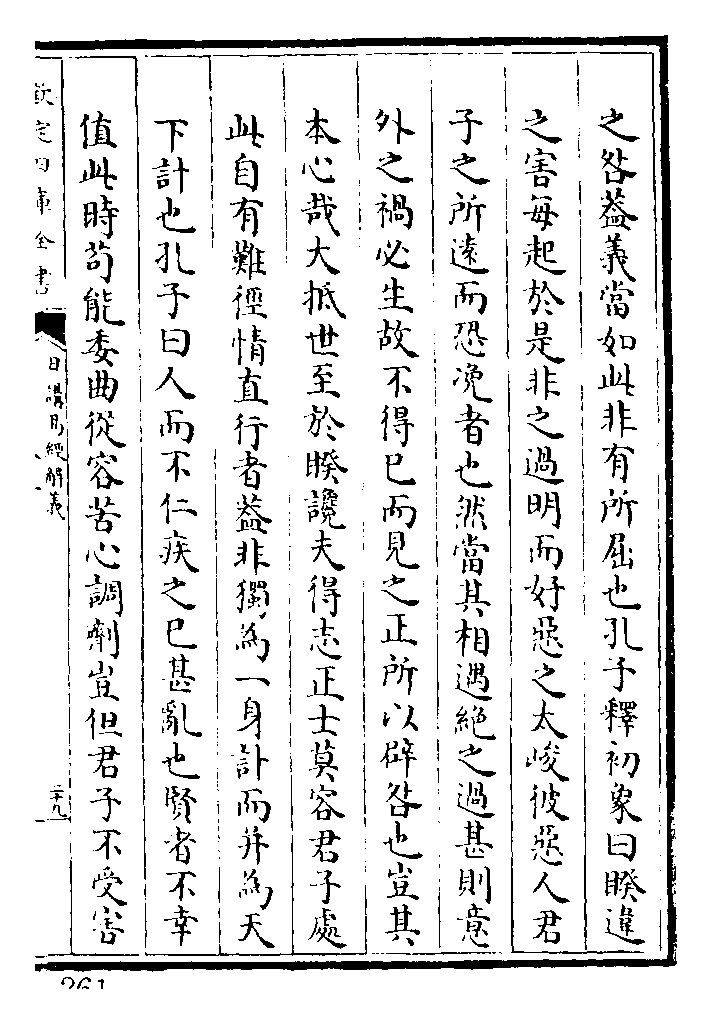 之咎葢義當如此非有所屈也孔子釋初象曰睽違
之害每起於是非之過明而好惡之太峻彼惡人君
子之所遠而恐凂者也然當其相遇絶之過甚則意
外之禍必生故不得已而見之正所以辟咎也豈其
本心哉大抵世至於睽讒夫得志正士莫容君子處
此自有難徑情直行者葢非獨為一身計而并為天
下計也孔子曰人而不仁疾之已甚亂也賢者不幸
值此時茍能委曲從容苦心調劑豈但君子不受害
欽定四庫全書
日講易經解義
二十九
261